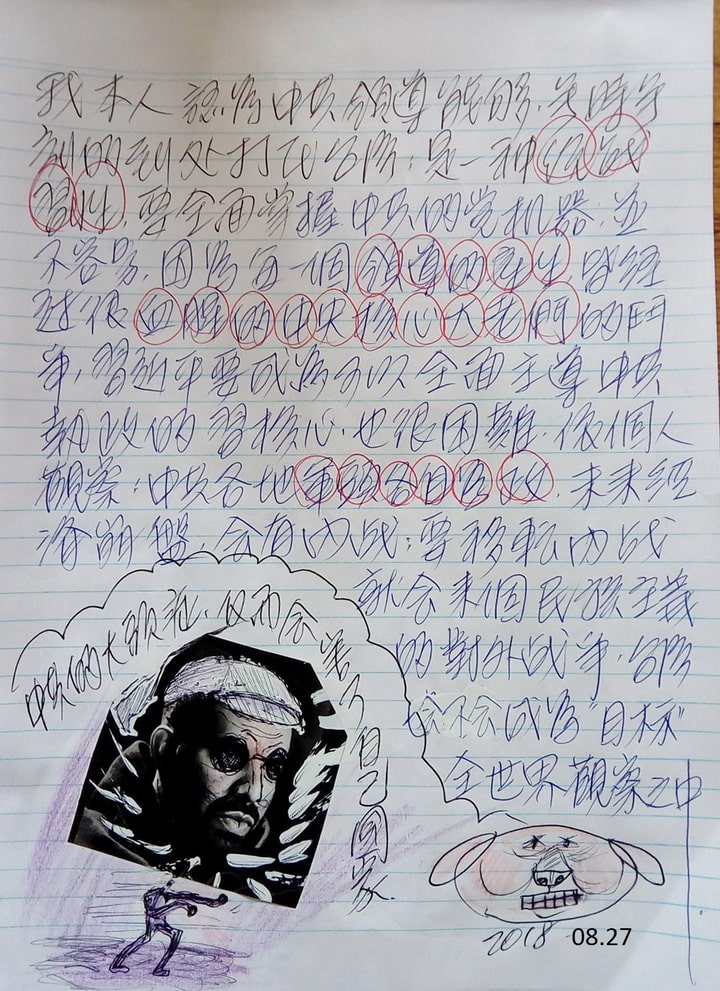 我本人認為中共領導能夠,无時无
刻的到处打压台灣:是一种经战
習性 要全面掌握中共的党机器:並
不容易,因為每一個領導的产生,皆經
过很血腥的中央核心大老們的鬥
爭,習近平要成為可以全面主導中共
執政的習核心,也很困難.依個人
觀察:中共各地軍頭各自為政.未來經
濟崩盤,会有內战:要移転內战
就会来個民族主義
的對外战爭,台灣
会不会成為"目标"
全世界觀察之中
中共的大頭症,反而会害了自己國家.
2018 08.27